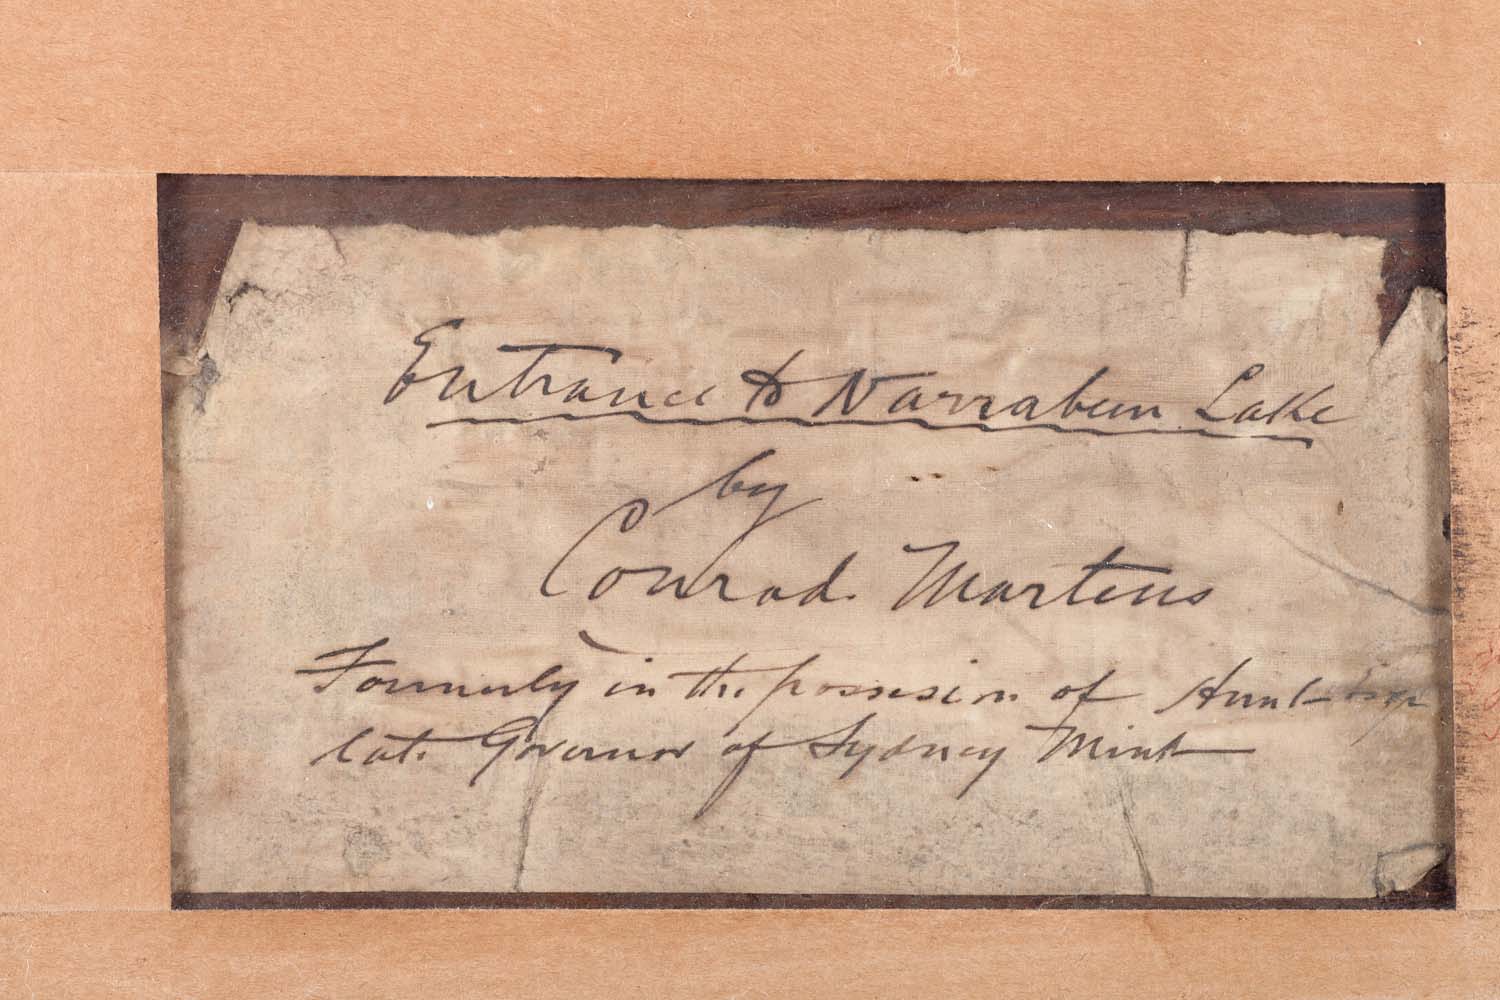 Entrance to Narrabeen Lake
by
Conrad Martens
Formerly in the possesion of Hunt Esqr
late Governor of Sydney Mint